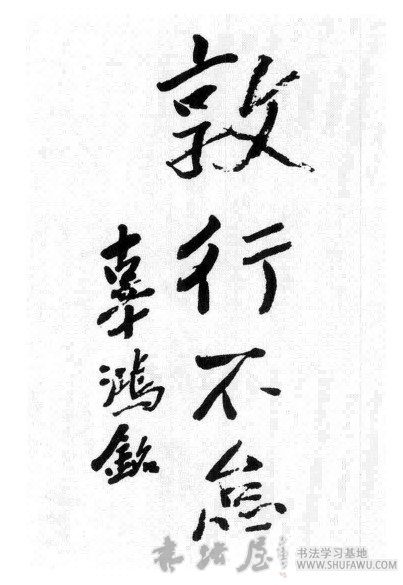 敦行不怠
辜鸿铭
书法屋
书法学习基地
WWW.SHUFAWU.COM